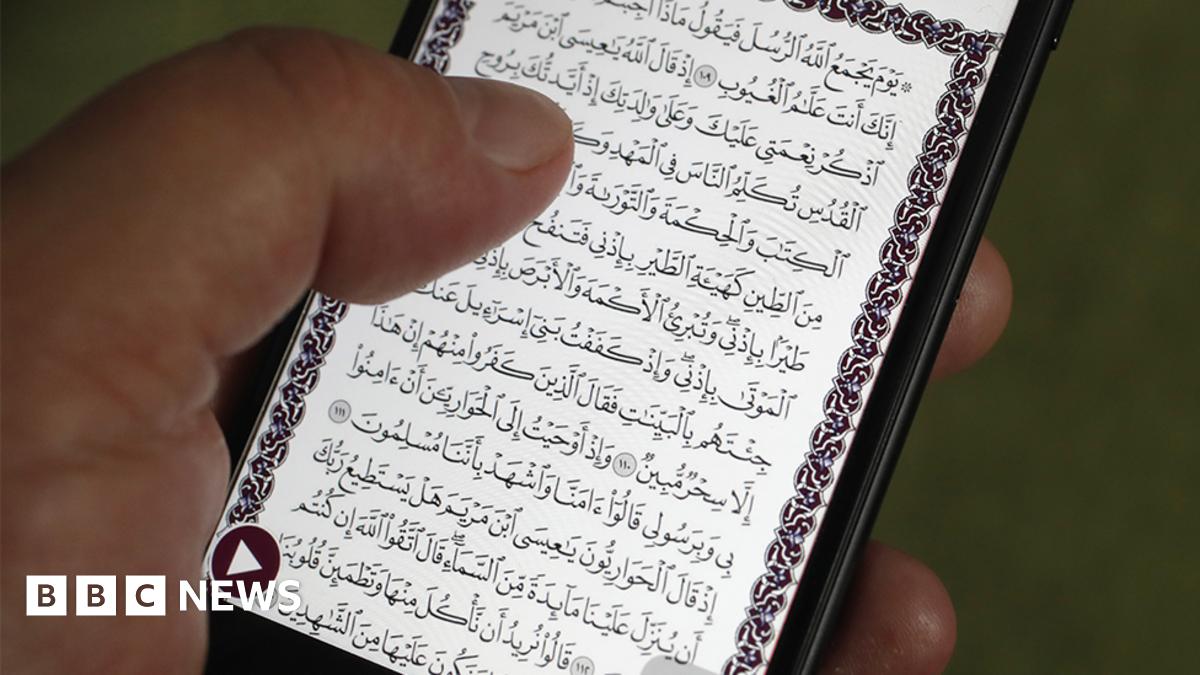 يَوْمَ يَجْمَعُ ٱللَّهُ ٱلرُّسُلَ فَيَقُولُ مَاذَآ أُجِبْتُمْ
إِنَّكَ أَنتَ عَلَّٰمُ ٱلْغُيُوبِ ١٠٩ إِذْ قَالَ ٱللَّهُ يَٰعِيسَى ٱبْنَ مَرْيَمَ
ٱذْكُرْ نِعْمَتِى عَلَيْكَ وَعَلَىٰ وَٰلِدَتِكَ إِذْ أَيَّدتُّكَ بِرُوحِ
ٱلْقُدُسِ تُكَلِّمُ ٱلنَّاسَ فِى ٱلْمَهْدِ
ٱلْكِتَٰبَ وَٱلْحِكْمَةَ وَٱلتَّوْرَىٰةَ
مِنَ ٱلطِّينِ كَهَيْـَٔةِ ٱلطَّيْرِ بِإِذْنِى فَتَنفُخُ
طَيْرًۢا بِإِذْنِى وَتُبْرِئُ ٱلْأَكْمَهَ وَٱلْأَبْرَصَ بِإِذْنِى
ٱلْمَوْتَىٰ بِإِذْنِى وَإِذْ كَفَفْتُ بَنِىٓ إِسْرَٰٓءِيلَ عَنكَ
جِئْتَهُم بِٱلْبَيِّنَٰتِ فَقَالَ ٱلَّذِينَ كَفَرُوا۟ مِنْهُمْ إِنْ هَٰذَآ
إِلَّا سِحْرٌ مُّبِينٌ ١١٠ وَإِذْ أَوْحَيْتُ إِلَى ٱلْحَوَارِيِّـۧنَ أَنْ ءَامِنُوا۟
بِى وَبِرَسُولِى قَالُوٓا۟ ءَامَنَّا وَٱشْهَدْ بِأَنَّنَا مُسْلِمُونَ ١١١
إِذْ قَالَ ٱلْحَوَارِيُّونَ يَٰعِيسَى ٱبْنَ مَرْيَمَ هَلْ يَسْتَطِيعُ رَبُّكَ
أَن يُنَزِّلَ عَلَيْنَا مَآئِدَةً مِّنَ ٱلسَّمَآءِ قَالَ ٱتَّقُوا۟ ٱللَّهَ إِن كُنتُم
١١٢ قَالُوا۟ نُرِيدُ أَن نَّأْكُلَ مِنْهَا وَتَطْمَئِنَّ قُلُوبُنَا
عَلَيْهَا مِنَ ٱلشَّٰهِدِينَ
BBC NEWS